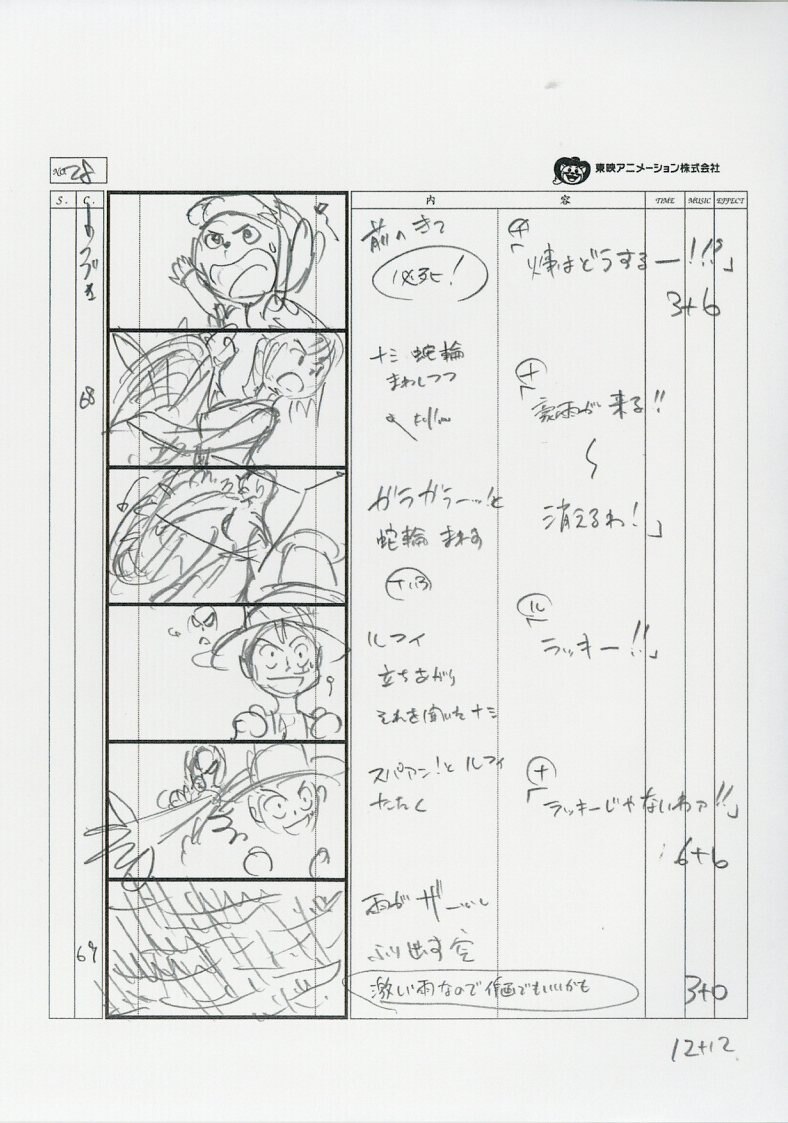 No. 28
東映アニメーション株式会社
S. C. 内 容 TIME MUSIC EFFECT
つづき
前へきて
必死!
火事はどうするー!!?」
3+6
68
ナミ 舵輪
まわしつつ
follow
ナ
「豪雨が来る!!
〜
消えるわ!」
ガラガラーッ!と
舵輪 まわる
ル
ルフィ
立ちあがり
それを聞いたナミ
「ラッキー!!」
スパアン!と ルフィ
たたく
ナ
「ラッキーじゃないわァ!!」
6+6
69
雨がザーッと
ふり出す空
激しい雨なので作画でもいいかも
3+0
12+12